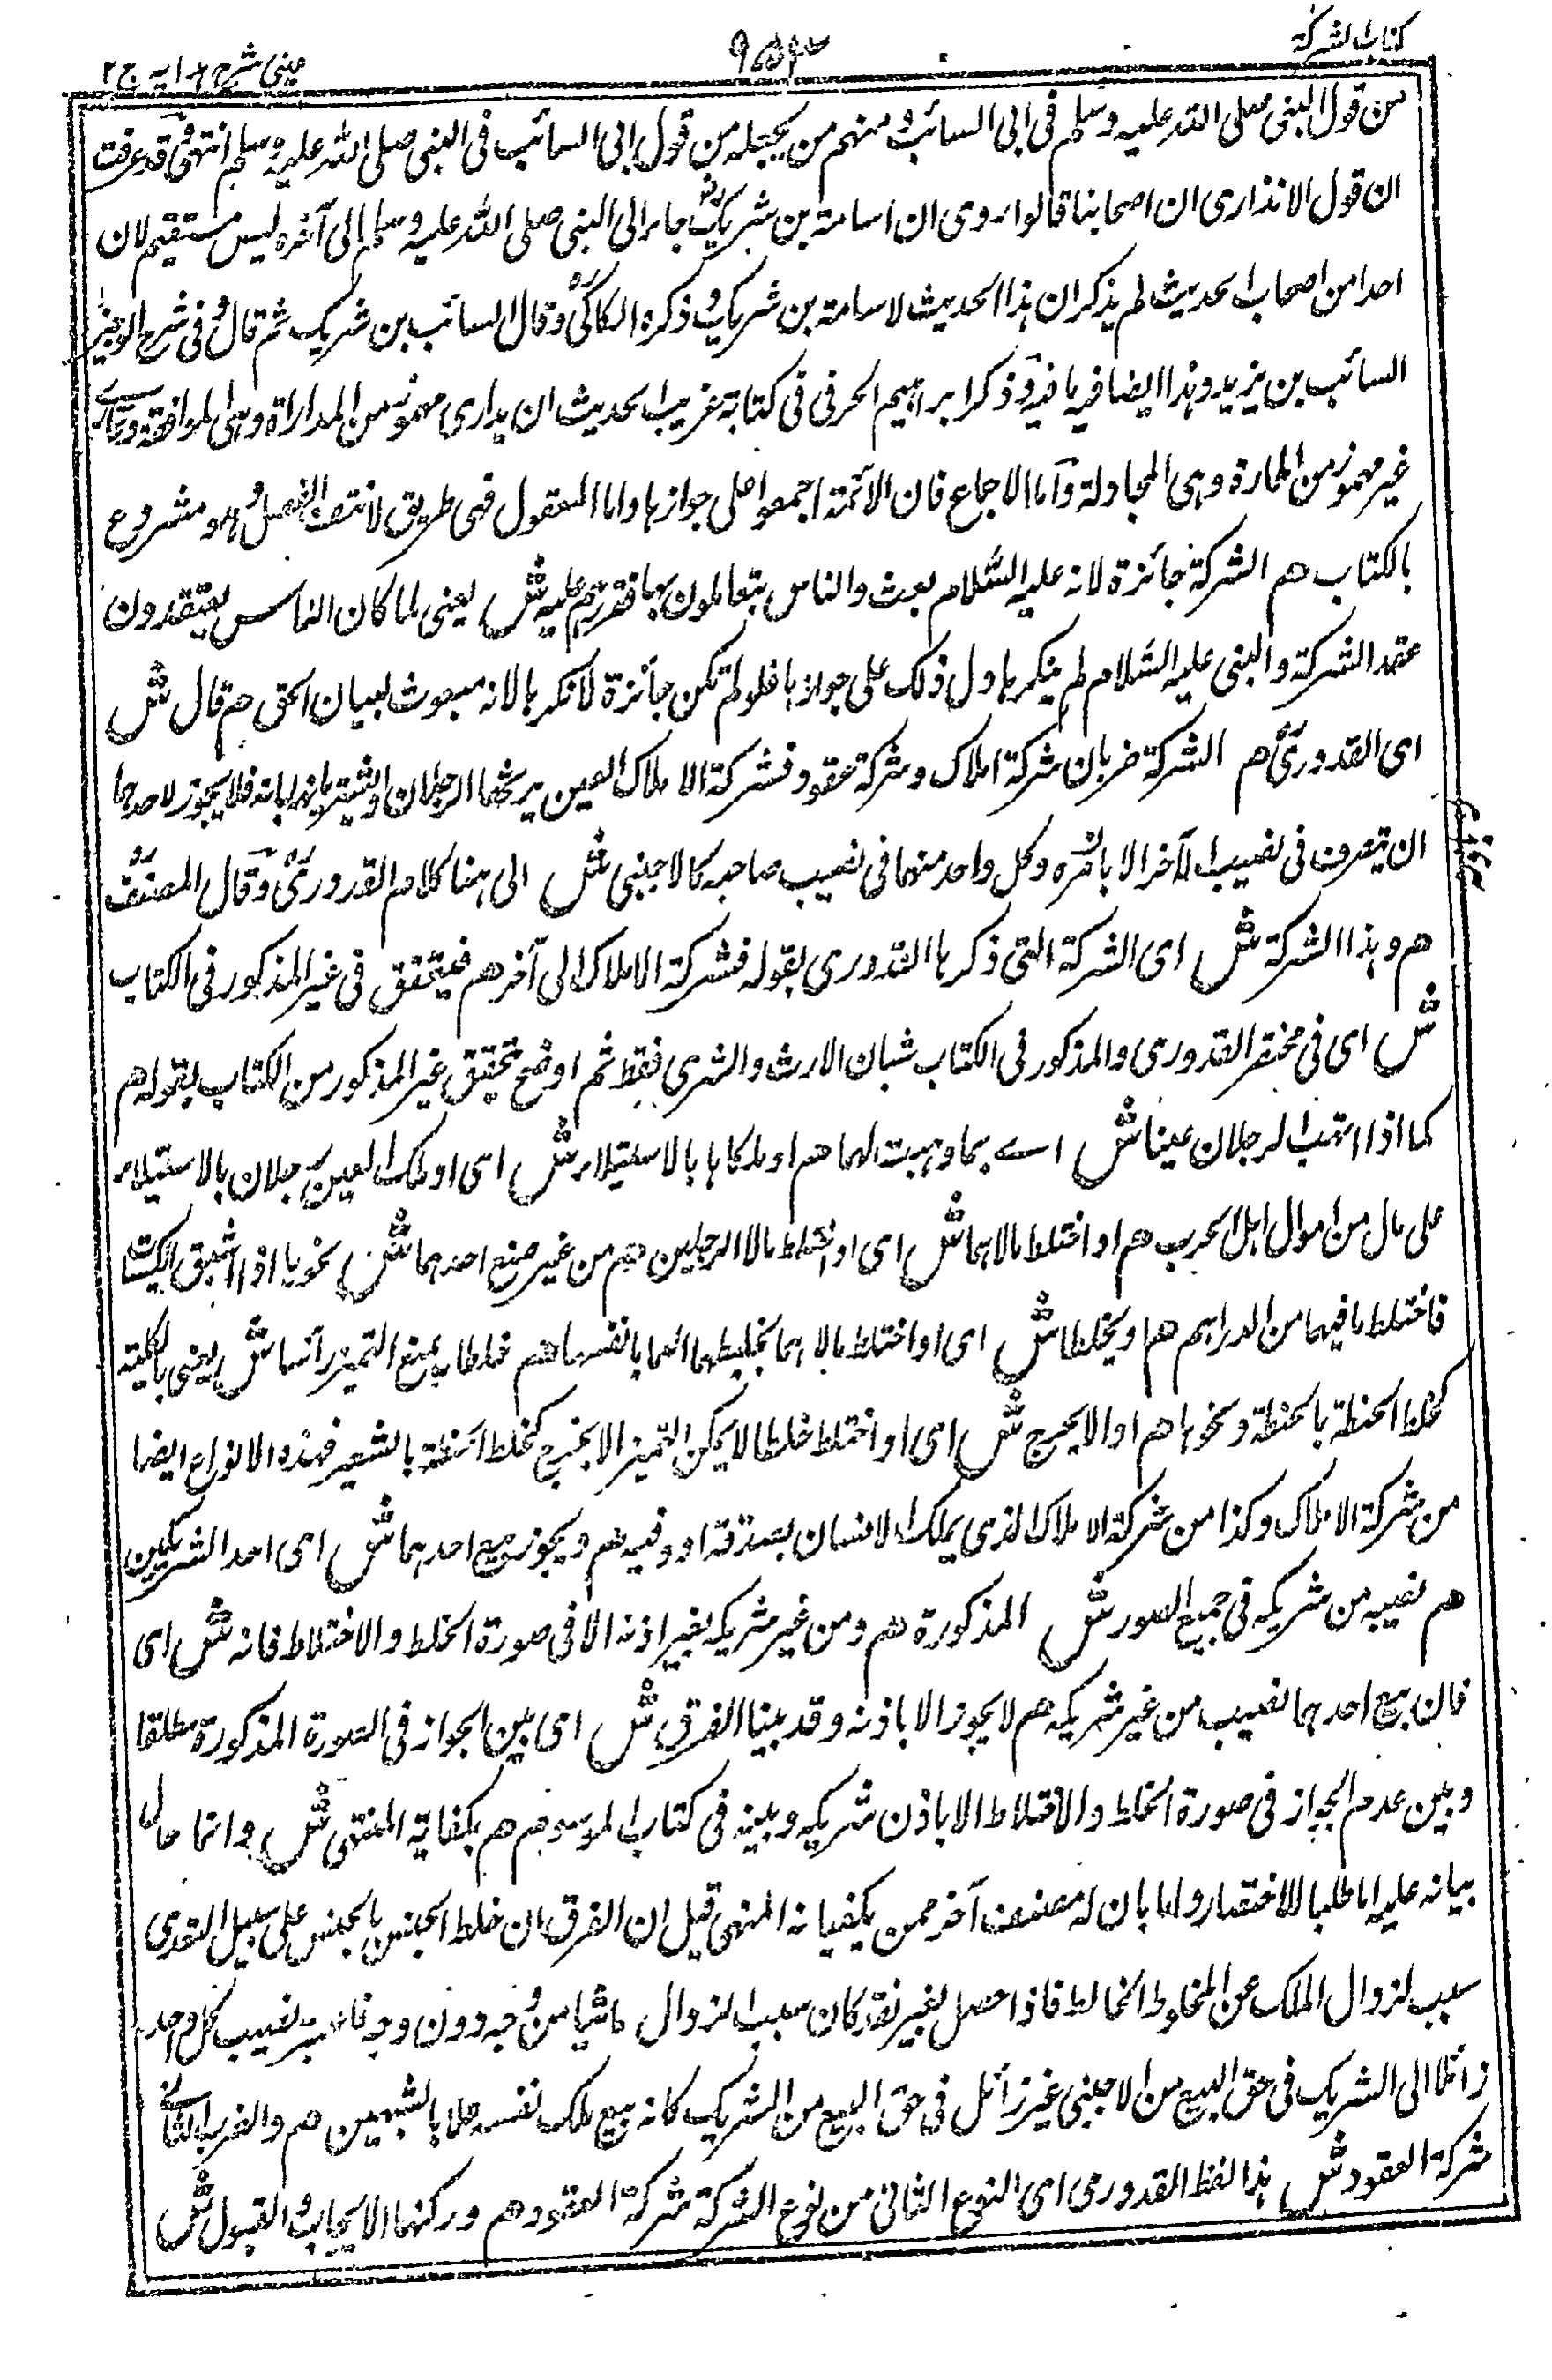 كتاب الشركة
٩٥٣
عينى شرح هدايه ج٢
من قول النبى صلى الله عليه وسلم فى ابى السائب ومنهم من يجعله من قول ابى السائب فى النبى صلى الله عليه وسلم انتهى وقد عرفت
ان قول الانذارى ان اصحابنا قالوا روى ان اسامة بن شريك جاء الى النبى صلى الله عليه وسلم الى آخره ليس مستقيم لان
احدا من اصحاب الحديث لم يذكر ان هذا الحديث لاسامة بن شريك وذكره الكاكى وقال السائب بن شريك ثم قال وفى شرح الوجيز
السائب بن يزيد وهذا ايضا فيه ما فيه وذكر ابراهيم الحرفى فى كتابه غريب الحديث ان يدارى مهموز من المداراة وهى الموافقة ويمارى
غير مهموز من المماراة وهى المجادلة واما الاجماع فان الائمة اجمعوا على جوازها واما المعقول فهى طريق لابتغاء الفضل وهو مشروع
بالكتاب هم الشركة جائزة لانه عليه السلام بعث والناس يتعاملون بها فقررهم عليه ش يعنى لما كان الناس يعتقدون
عقد الشركة والنبى عليه السلام لم ينكرها دل ذلك على جوازها فلو لم تكن جائزة لانكرها لانه مبعوث لبيان الحق هم قال ش
اى القدورى هم الشركة ضربان شركة املاك وشركة عقود فشركة الاملاك العين يرثها الرجلان او يشتريانها فلا يجوز لاحدهما
ان يتصرف فى نصيب الآخر الا باذنه وكل واحد منهما فى نصيب صاحبه كالاجنبى ش الى هنا كلام القدورى وقال المصنف
هم وهذا الشركة ش اى الشركة التى ذكرها القدورى بقوله فشركة الاملاك الى آخر هم فيتحقق فى غير المذكور فى الكتاب
ش اى فى مختصر القدورى والمذكور فى الكتاب شيئان الارث والشرى فقط ثم اوضح تحقق غير المذكور من الكتاب بقوله هم
كما اذا اتهب الرجلان عينا ش اے بما وهبت لهما هم او ملكاها بالاستيلاء ش اى او ملك العين رجلان بالاستيلاء
على مال من اموال اهل الحرب هم او اختلط مالاهما ش اى او اختلط مالا الرجلين هم من غير صنع احدهما ش نحو ما اذا انشق الكيسان
فاختلط ما فيهما من الدراهم هم او بخلطها ش اى او اختلط مالاهما بخلطهما انفسهما هم خلطا يمنع التميز رأسا ش يعنى بالكلية
كخلط الحنطة بالحنطة ونحوها هم او الا بحرج ش اى او اختلط خلطا لا يمكن التميز الا بحرج كخلط الحنطة بالشعير فهذه الانواع ايضا
من شركة الاملاك وكذا من شركة الاملاك الذى يملك الانسان بصدقة او وصية هم ويجوز بيع احدهما ش اى احد الشريكين
هم نصيبه من شريكه فى جميع الصور ش المذكورة هم ومن غير شريكه بغير اذنه الا فى صورة الخلط والاختلاط فانه ش اى
فان بيع احدهما نصيب من غير شريكه هم لا يجوز الا باذنه وقد بينا الفرق ش اى بين الجواز فى الصورة المذكورة مطلقا
وبين عدم الجواز فى صورة الخلط والاختلاط الا باذن شريكه وبينه فى كتاب الموسوم هم بكفاية المنتهى ش وانما حال
بيانه عليه اما طلبا للاختصار واما بان له مصنف آخر ممن يكفيانه المنتهى قيل ان الفرق ان خلط الجنس بالجنس على سبيل التعدى
سبب لزوال الملك عن المخلوط الى الخالط فاذا حصل بغير تعد كان سبب الزوال ثابتا من وجه دون وجه فاعتبر نصيب كل واحد
زائلا الى الشريك فى حق البيع من الاجنبى غير زائل فى حق البيع من الشريك كانه بيع ملك نفسه عملا بالشبهين هم والضرب الثانى
شركة العقود ش هذا لفظ القدورى اى النوع الثانى من نوع الشركة شركة العقود هم وركنها الايجاب والقبول ش